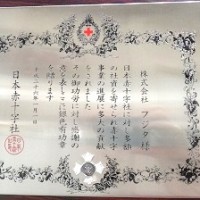 株式会社 アンフタ 様
日本赤十字社に対し多額
の社資を寄せられ赤十字
事業の進展に多大の貢献
をされました
その御功労に対し感謝の
意を表して銀色有功章
を贈ります
平成二十六年一月一日
日本赤十字社